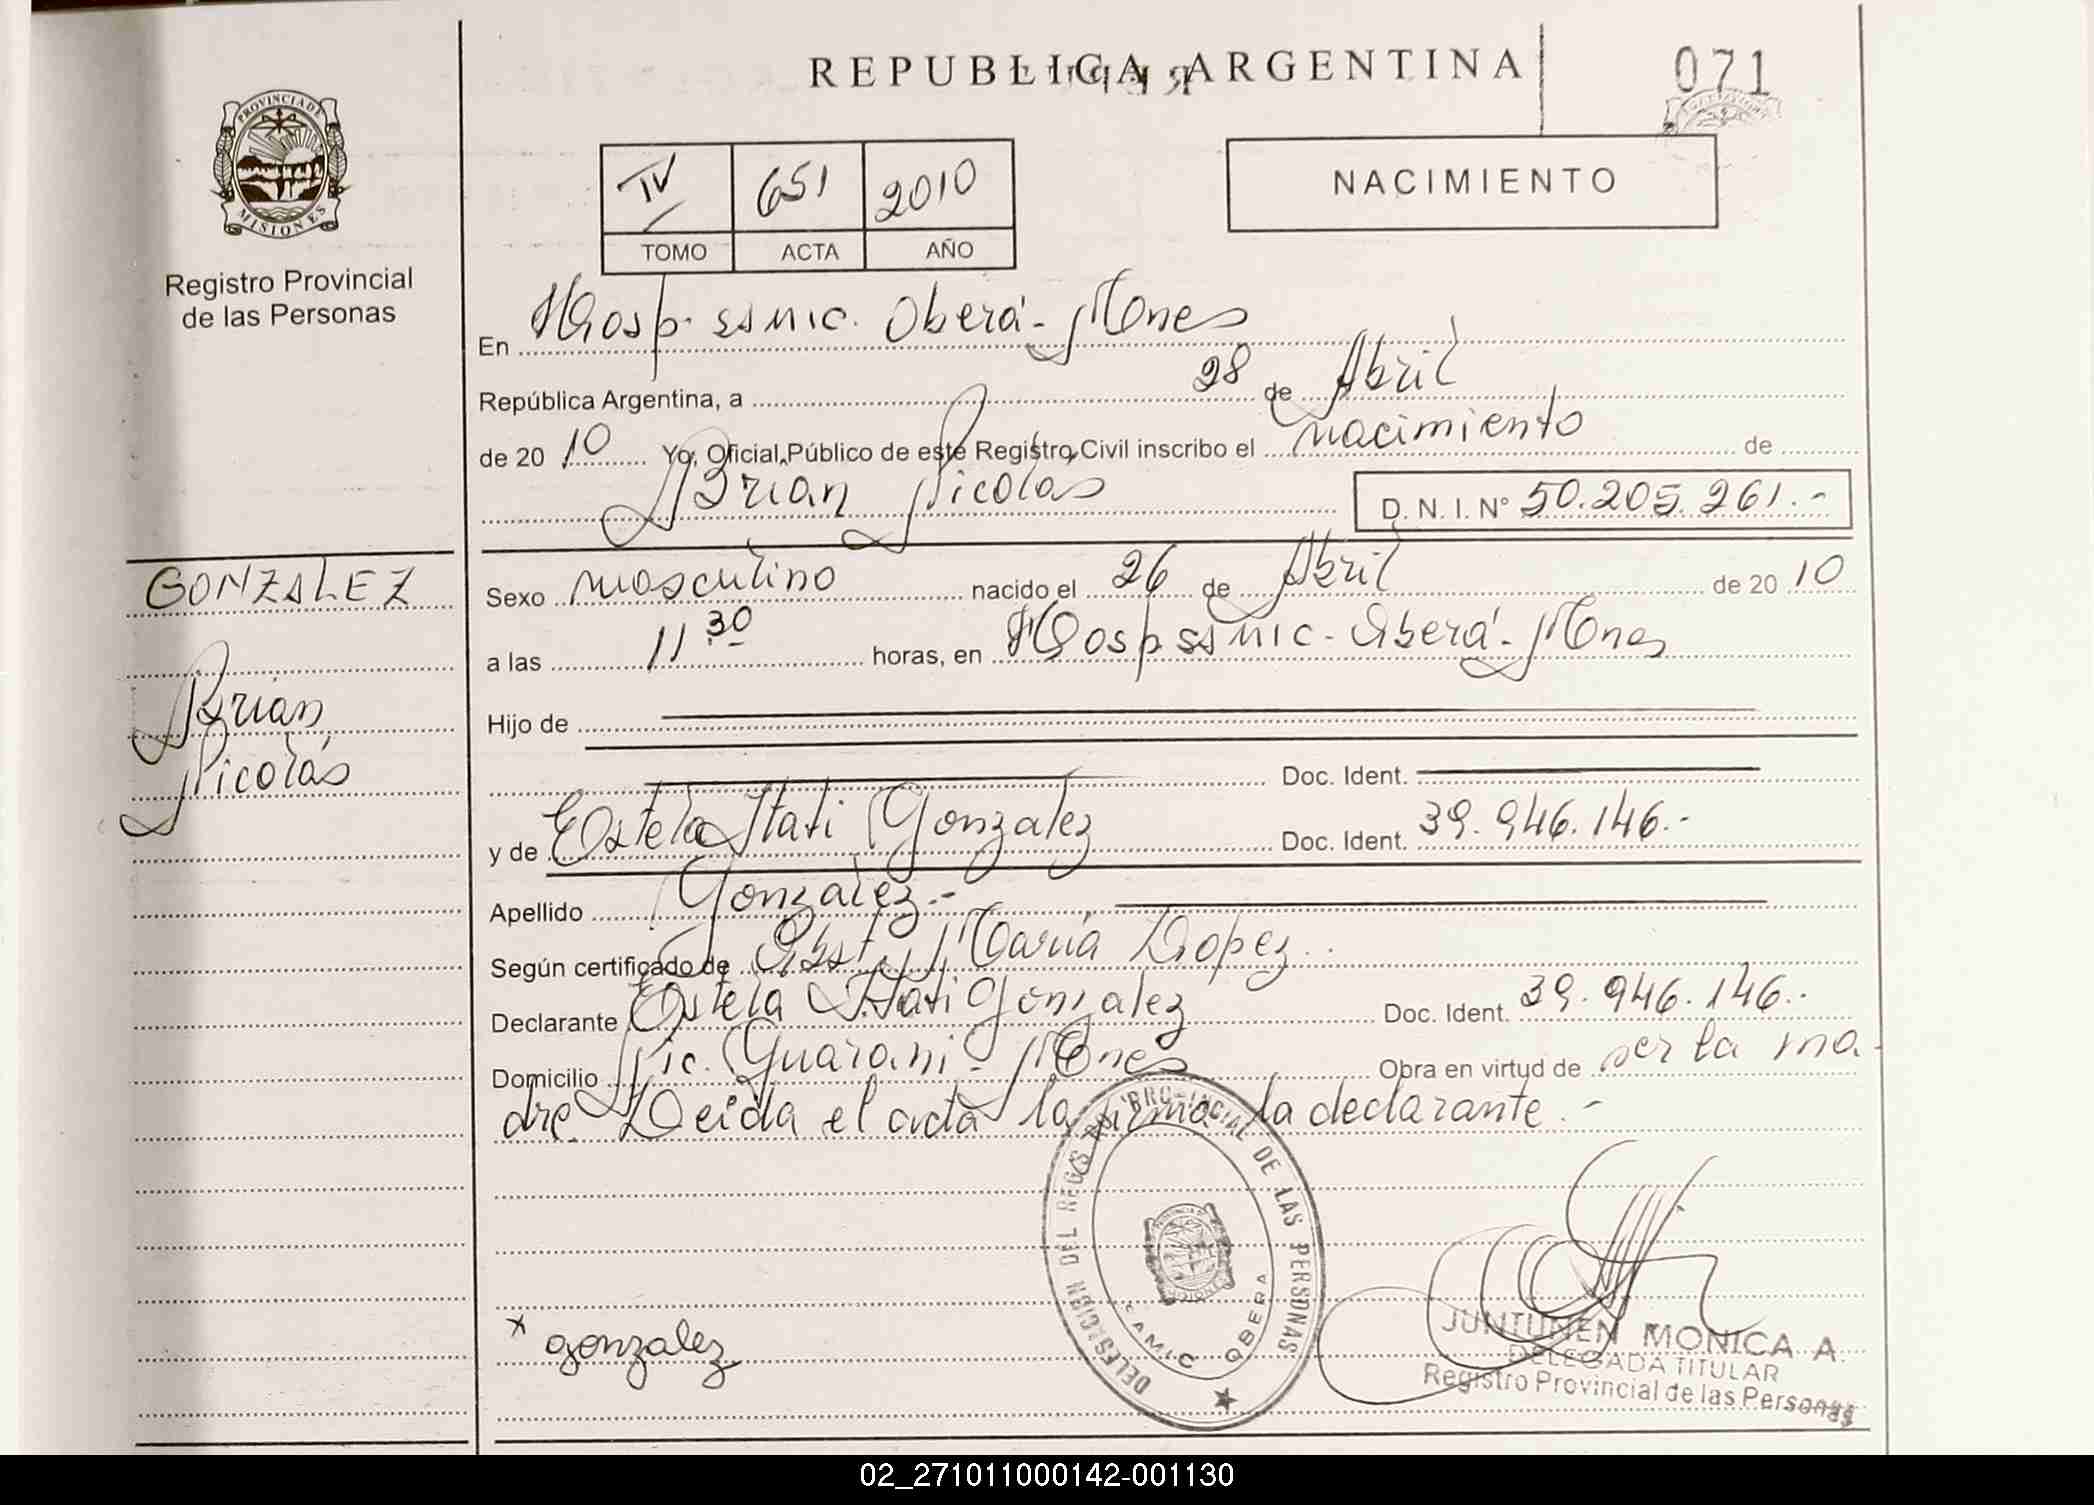 REPUBLICA ARGENTINA
071
PROVINCIA DE
MISIONES
Registro Provincial
de las Personas
IV 651 2010
TOMO ACTA AÑO
NACIMIENTO
En Hosp. SAMIC. Oberá - Mnes
República Argentina, a 28 de Abril
de 2010 Yo, Oficial Público de este Registro Civil inscribo el nacimiento de
Brian Nicolás D. N. I. N° 50.205.261.-
GONZALEZ
Brian
Nicolás
Sexo masculino nacido el 26 de Abril de 2010
a las 11 30 horas, en Hosp SAMIC - Oberá - Mnes
Hijo de
Doc. Ident.
y de Estela Itati Gonzalez Doc. Ident. 39.946.146.-
Apellido Gonzalez.-
Según certificado de Obst. María Lopez.
Declarante Estela Itati Gonzalez Doc. Ident. 39.946.146.-
Domicilio Guarani - Mnes Obra en virtud de ser la ma-
dre. Leida el acta la firma la declarante.-
DELEGACION DEL REG. PROVINCIAL DE LAS PERSONAS
SAMIC OBERA
x gonzalez
JUNTUNEN MONICA A.
DELEGADA TITULAR
Registro Provincial de las Personas
02_271011000142-001130